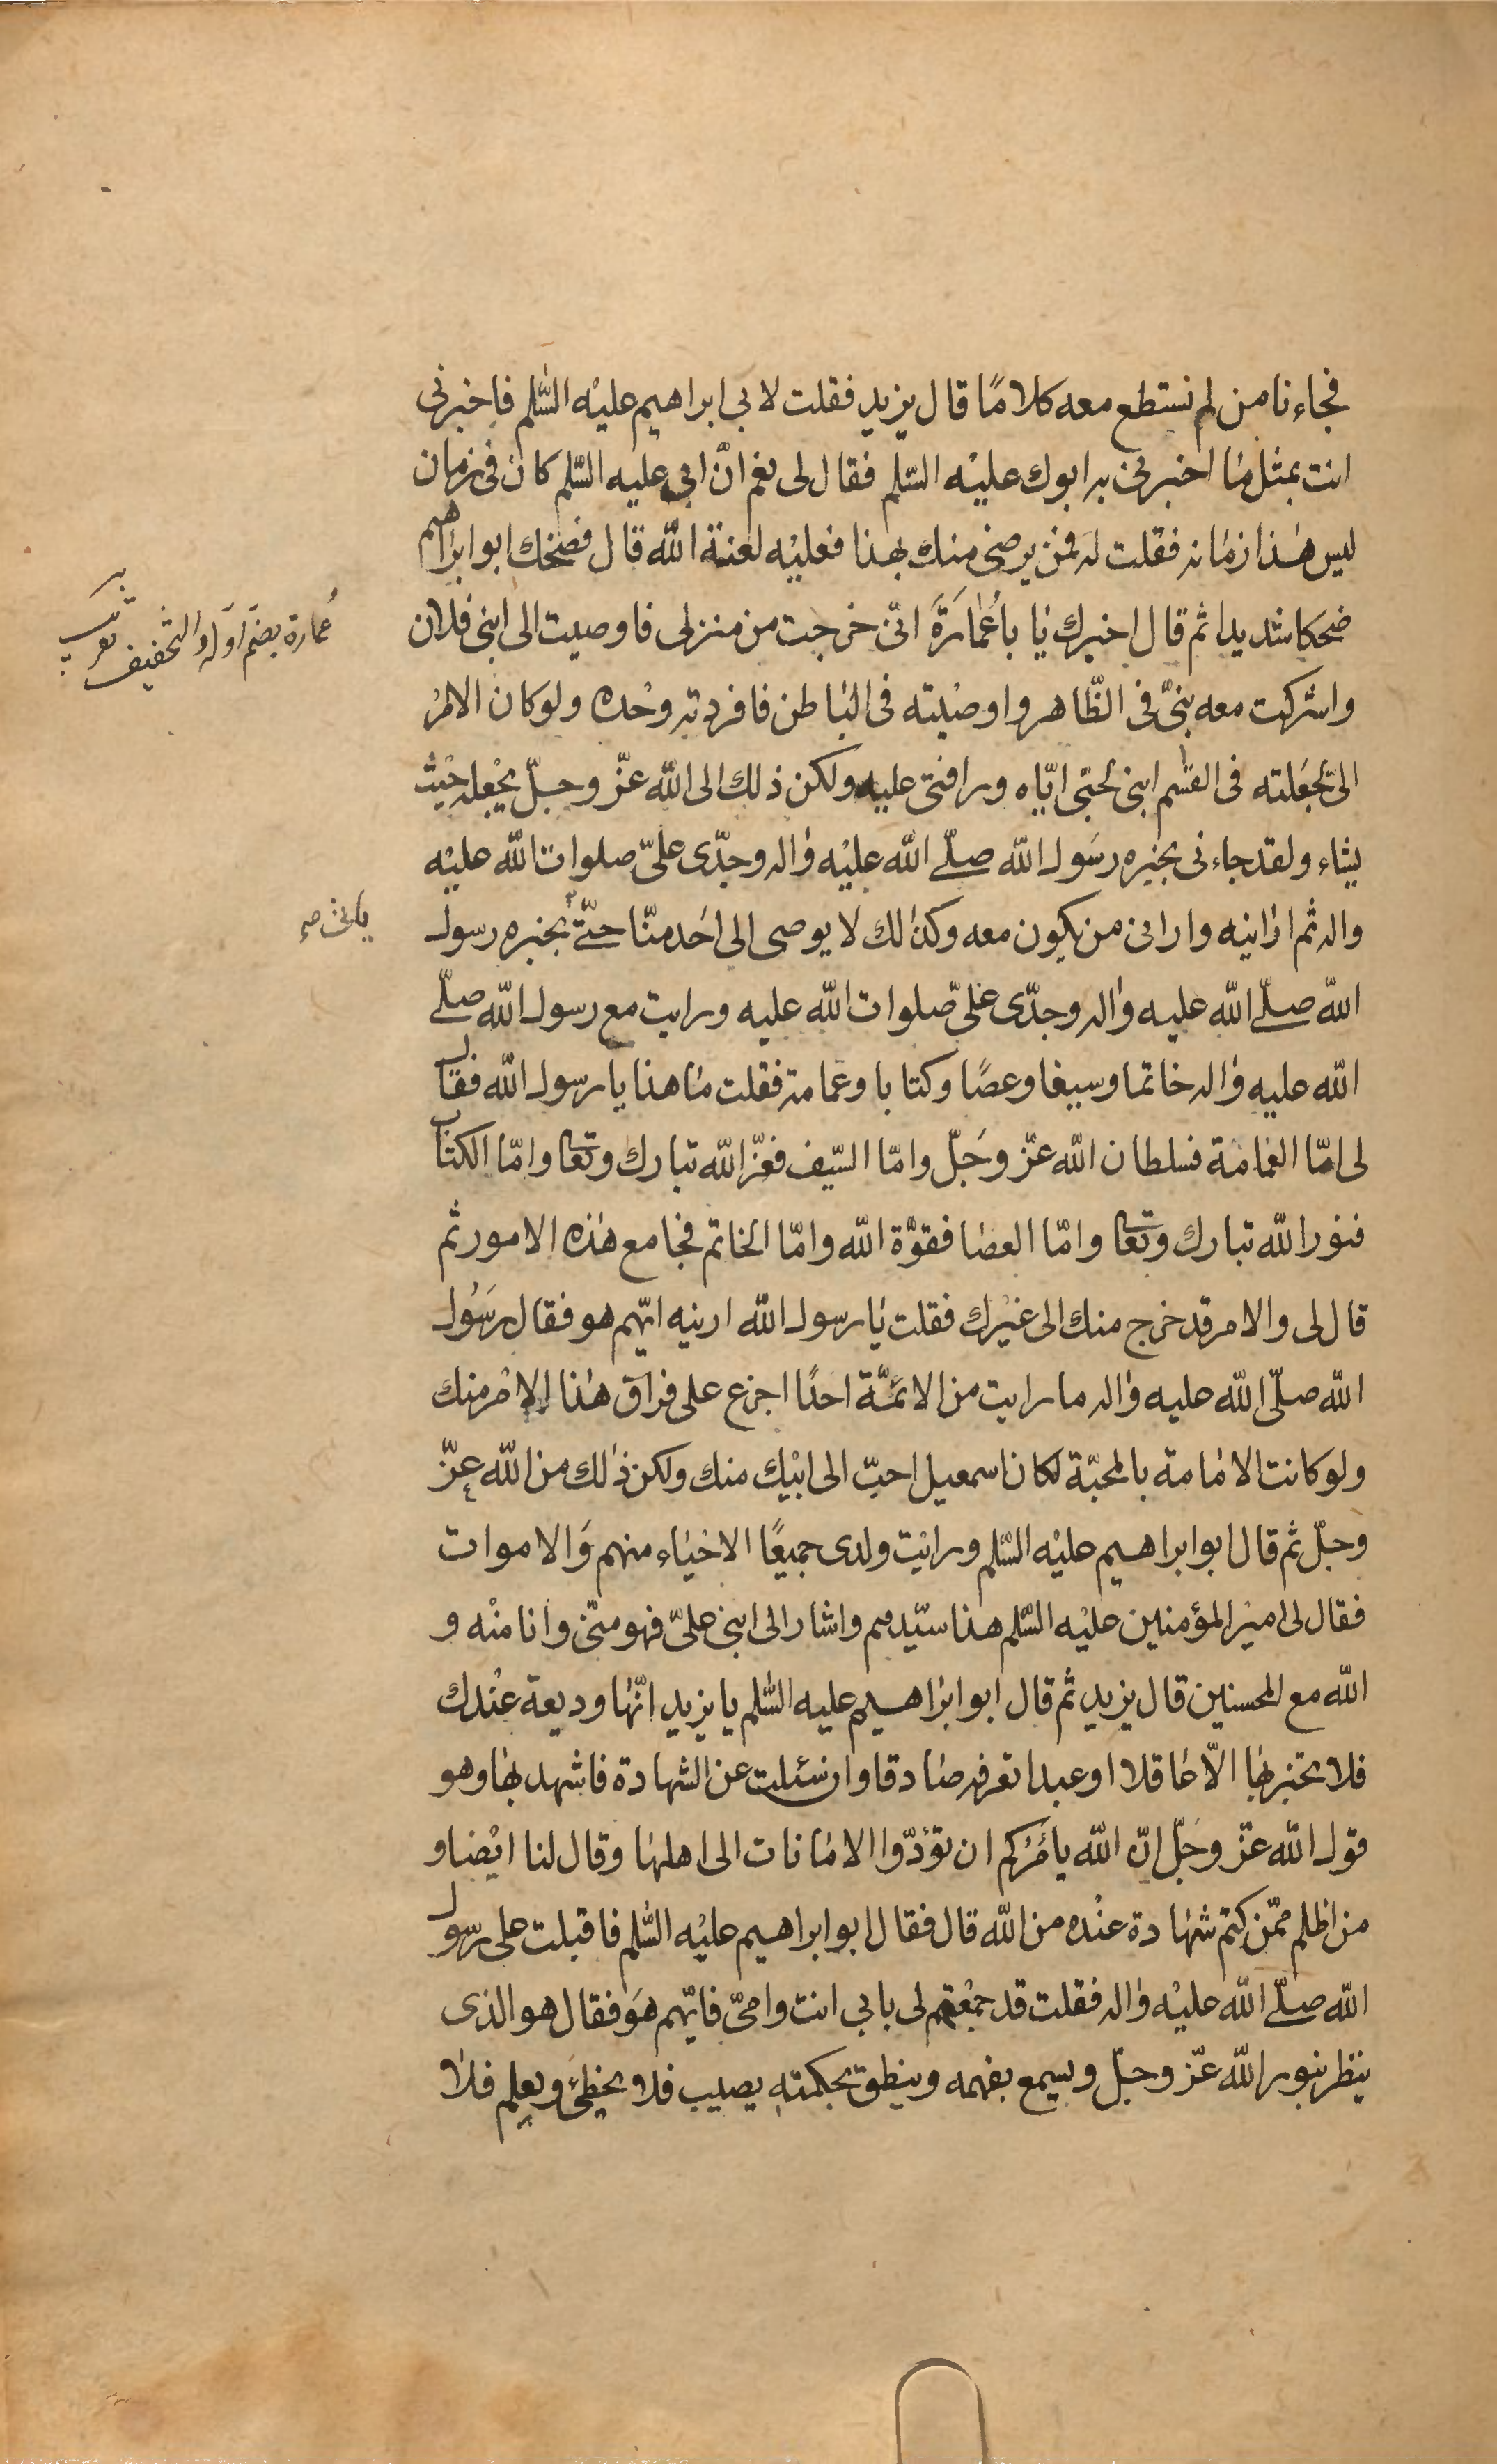 فجاءنا من لم نستطع معه كلامًا قال يزيد فقلت لابي ابراهيم عليه السّلم فاخبرنى
انت بمثل ما اخبرنى به ابوك عليه السّلم فقال لى نعم انّ ابى عليه السّلم كان فى زمان
ليس هذا زمانه فقلت له فمن يرضى منك بهذا فعليه لعنة الله قال فضحك ابو ابراهيم
ضحكا شديدا ثم قال اخبرك يا با عُمَارَةَ انّى خرجت من منزلى فاوصيت الى ابنى فلان
واشركت معه بنىّ فى الظّاهر واوصيته فى الباطن فافردته وحده ولو كان الامر
الىّ لجعلته فى القسم ابنى لحبّى ايّاه ورافتى عليه ولكن ذلك الى الله عزّ وجلّ يجعله حيث
يشاء ولقد جاءنى بخبره رسول الله صلّى الله عليه واله وجدّى علىّ صلوات الله عليه
واله ثم ارانيه وارانى من يكون معه وكذلك لا يوصى الى احد منّا حتّى بخبره رسول
الله صلّى الله عليه واله وجدّى علىّ صلوات الله عليه ورايت مع رسول الله صلّى
الله عليه واله خاتما وسيفا وعصًا وكتابا وعمامة فقلت ما هذا يا رسول الله فقال
لى امّا العمامة فسلطان الله عزّ وجلّ وامّا السّيف فعزّ الله تبارك وتعا وامّا الكتاب
فنور الله تبارك وتعا وامّا العصا فقوّة الله وامّا الخاتم فجامع هذه الامور ثم
قال لى والامر قد خرج منك الى غيرك فقلت يا رسول الله ارينه ايّهم هو فقال رسول
الله صلّى الله عليه واله ما رايت من الائمّة احدًا اجزع على فراق هذا الامر منك
ولو كانت الامامة بالمحبّة لكان اسمعيل احبّ الى ابيك منك ولكن ذلك من الله عزّ
وجلّ ثم قال ابو ابراهيم عليه السّلم ورايت ولدى جميعًا الاحياء منهم والاموات
فقال لى امير المؤمنين عليه السّلم هذا سيّدهم واشار الى ابنى علىّ فهو منّى وانا منه و
الله مع المحسنين قال يزيد ثم قال ابو ابراهيم عليه السّلم يا يزيد انّها وديعة عندك
فلا تخبر بها الّا عاقلا او عبدا تعرفه صادقا وان سئلت عن الشهادة فاشهد بها وهو
قول الله عزّ وجلّ انّ الله يأمُرُكم ان تؤدّوا الامانات الى اهلها وقال لنا ايضا و
من اظلم ممّن كتم شهادة عنده من الله قال فقال ابو ابراهيم عليه السّلم فاقبلت على رسول
الله صلّى الله عليه واله فقلت قد جمعتهم لى بابى انت وامّى فايّهم هو فقال هو الذى
ينظر بنور الله عزّ وجلّ ويسمع بفهمه وينطق بحكمته يصيب فلا يخطئ ويعلم فلا
عُمارة بضمّ اوّله والتخفيف